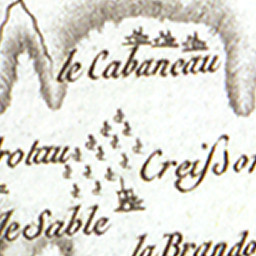 le Cabaneau
rotau Creisson
de Sable
la Brando